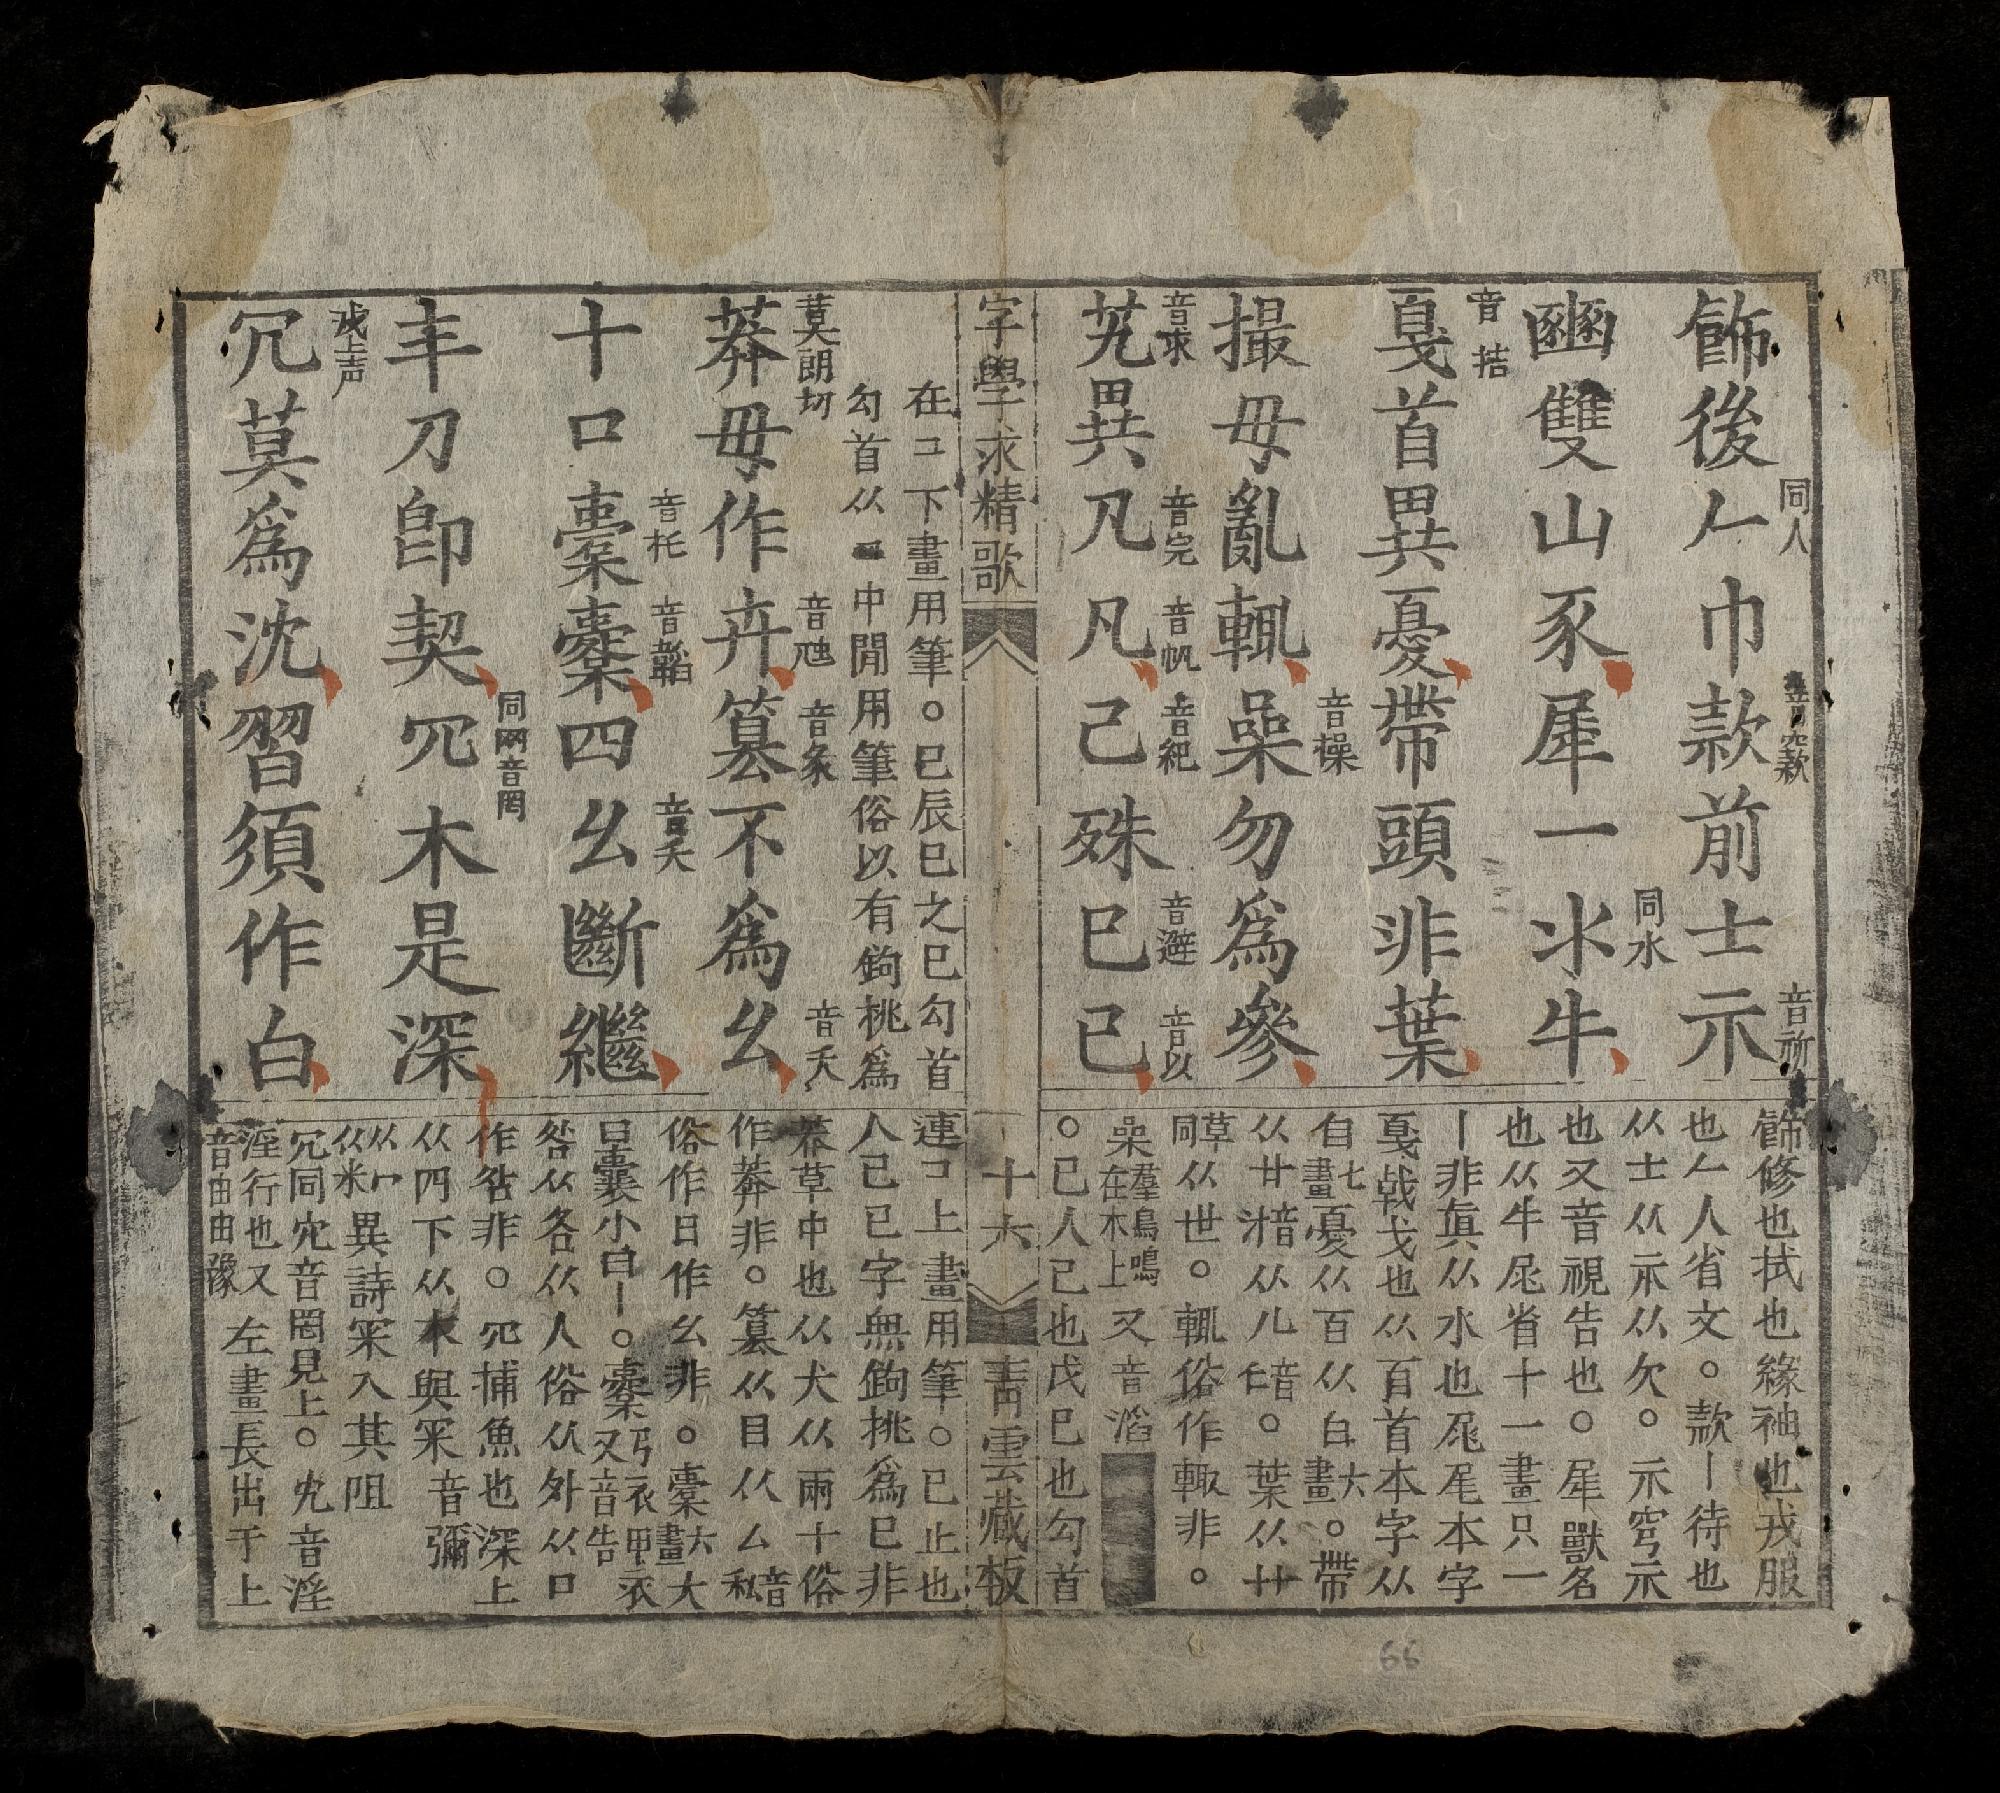 飾後𠂉巾款前士示
同人
音款
音祈
豳雙山豕犀一氺牛
同水
戛首異憂帶頭非葉
音拮
撮毋亂輒喿勿為參
音操
艽異凡凡己殊巳已
音求
音完
音帆
音紀
音避
音以
飾修也拭也緣袖也戎服
也𠂉人省文。款丨待也
从士从示从欠。示穹示
也又音視告也。犀獸名
也从牛尾省十一畫只一
丨非眞从水也尾尾本字
戛戟戈也从𦣻首本字从
自七畫憂从百从白六畫。帶
从廿音从儿音仁。葉从廿
草同从世。輒俗作輙非。
喿羣鳥鳴在木上又音滔
。己人己也戊己也勾首
字學求精歌
十六
靑雲藏板
在コ下畫用筆。巳辰巳之巳勾首
勾首从中閒用筆俗以有鉤挑為
莽毋作卉篡不為幺
莫朗切
音虺
音夭
十口橐櫜四幺斷繼
音托
音韜
音夭
丰刀卽契罒木是深
同网音罔
冗莫為沈習須作白
戎上声
連コ上畫用筆。已止也
人已已字無鉤挑為巳非
莽草中也从犬从兩十俗
作莾非。篡从目从厶音私
俗作日作幺非。橐六畫大
曰囊小曰丨。櫜弓衣甲衣又音告
咎从各从人俗从外从口
作咎非。罒捕魚也深上
从罒下从木與冞音彌
从冖从米異詩冞入其阻
冗同宂音罔見上。冘音淫
淫行也又音由由豫左畫長出于上